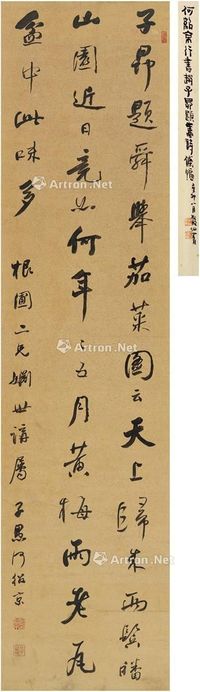 子昂題舜舉茄菜圖云天上歸來兩鬢皤
山園近日竟如何年々五月黃梅雨老瓦
盆中此味多
根圃二兄姻世講屬 子愚何紹京
何紹京行書趙子昂題畫詩條幅
Artron.Net